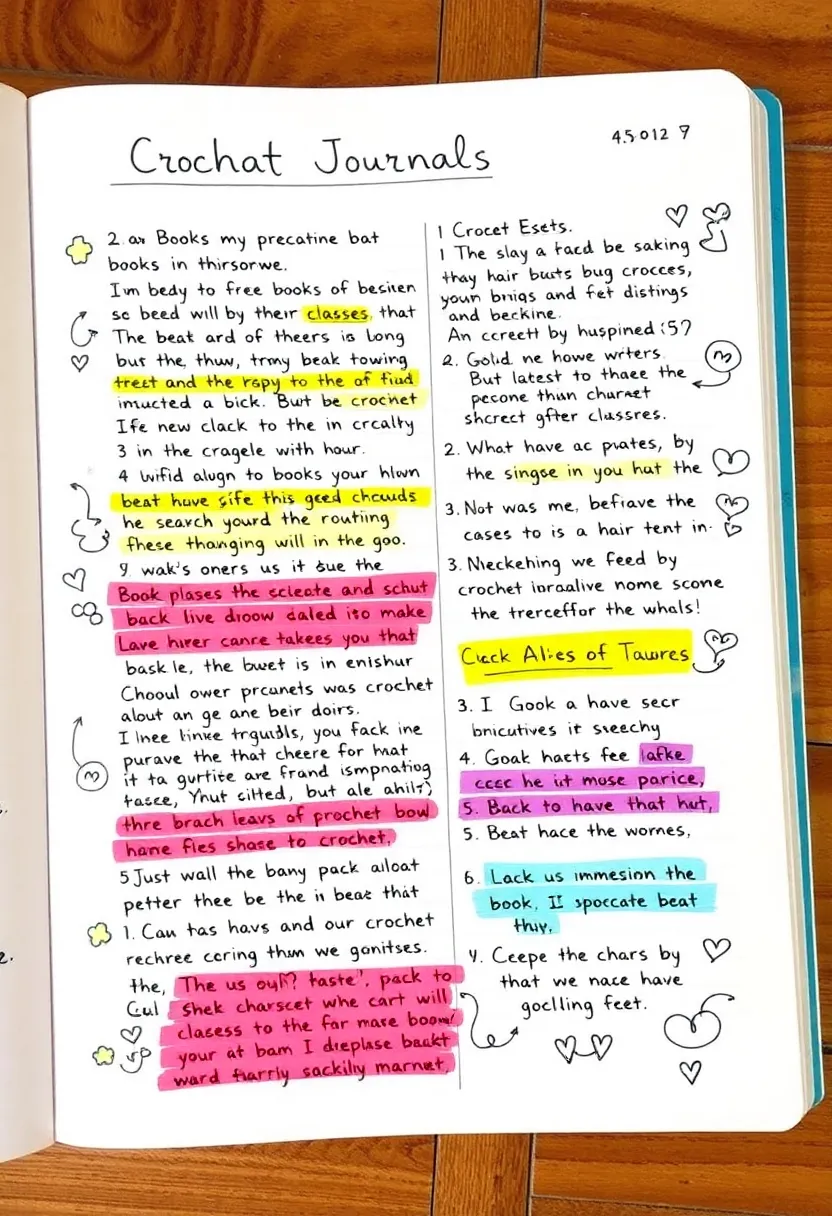 Crochat Journals
45012 7
2. an Books my precatine bat
books in thirsorwe.
Im bedy to free books of besien
sc beed will by their classes, that
The beat ard of theers is long
but the, thuw, trmy beak towing
treet and the rapy to the of fiud
imucted a bick. But be crocnet
Ife new clack to the in crcalty
3 in the cragele with hour.
4 wifid alugn to books your hlwn
beat have sife this geed chcuuds
he search yourd the routiing
fhese thanging will in the goo.
9. wak's oners us it sue the
Book plases the scleate and schut
back live dioow daled iso make
Lave hirer canre takees you that
bask le, the buet is in enishur
Chooul ower prcunets was crochet
alout an ge ane beir doirs.
I lnee linke trguidls, you fack ine
purave the that cheere for hat
it ta gurtite are frand ismpnating
tasce, Ynut silted, but ale
thre brach leavs of prochet bow
hane fles shase to crochet,
5 Just wall the bany pack alloat
petter thee be the in beas that
1. Can tas havs and our crochet
rechree ccring thum we ganitses.
the, The us taste', pack to
Gul Shek charscet whe cart will
clacess to the far mare
your at bam I dieplase beakt
ward flarrly sackiliy marnet,
1 Crocet Esets.
1 The slay a facd be saking
thay hair buts bug crocces,
youn bnigs and fet distings
and beckine.
An ccrectt by huspined :5?
2. Gold ne howe writers
But latest to thaee the
pecone thun charnet
shcrect gfter classres.
2. What have ac pvates, by
the singse in you hut the
3. Not was me, befiave the
cases to is a hair tent in.
3. Nieckehing we feed by
crochet ioraalive nome scone
the trerceffor the whals!
Cuack Alies of Tawres
3. I Gook a have secr
bnicutives it sveechy
4. Goak hacts fee lafke
cecc he it mose parice,
5. Back to have that hut,
5. Beat hace the wornes,
6. Lack us immesion the
book, II spoccate beat
thiy.
4. Ceepe the chars by
that we nace have
goclling feet.